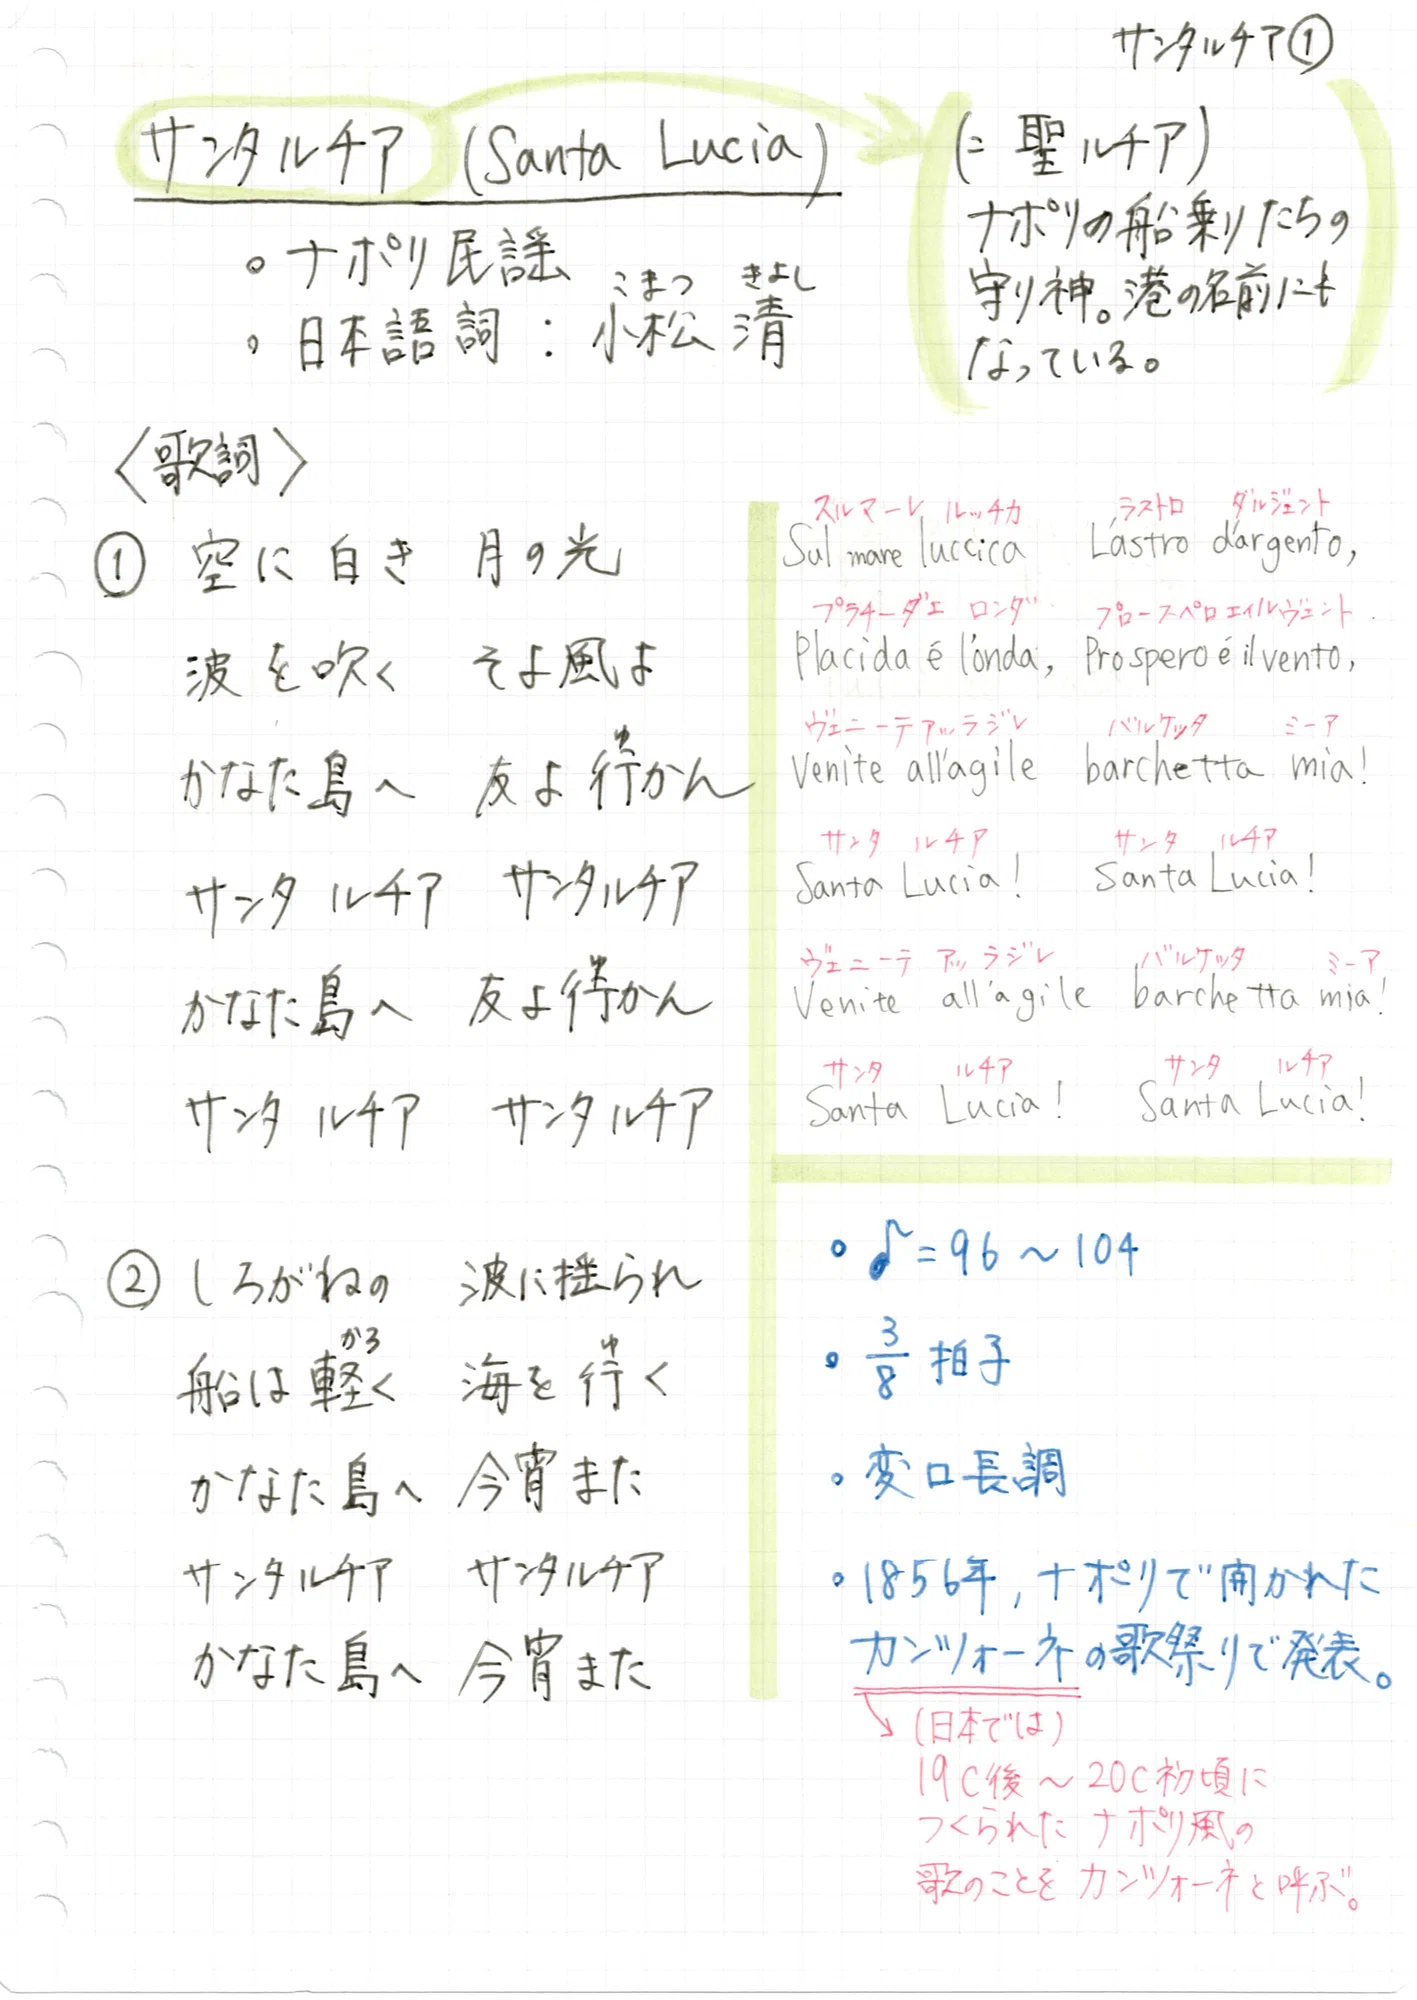 サンタルチア①
サンタルチア (Santa Lucia)
(= 聖ルチア)
ナポリの船乗りたちの
守り神。港の名前にも
なっている。
。ナポリ民謡
こまつ きよし
。日本語詞：小松 清
〈歌詞〉
① 空に 白き 月の光
波を吹く そよ風よ
ゆ
かなた島へ 友よ 行かん
サンタ ルチア サンタルチア
ゆ
かなた島へ 友よ行かん
サンタ ルチア サンタルチア
② しろがねの 波に揺られ
かろ ゆ
船は軽く 海を行く
かなた島へ 今宵また
サンタルチア サンタルチア
かなた島へ 今宵また
スルマーレ ルッチカ ラストロ ダルジェント
Sul mare luccica L'astro d'argento,
プラチーダエ ロンダ プロースペロエイルヴェント
Placida é l'onda, Prospero é il vento,
ヴェニーテアッラジレ バルケッタ ミーア
Venite all'agile barchetta mia!
サンタ ルチア サンタ ルチア
Santa Lucia! Santa Lucia!
ヴェニーテ アッラジレ バルケッタ ミーア
Venite all'agile barchetta mia!
サンタ ルチア サンタ ルチア
Santa Lucia! Santa Lucia!
。♪=96〜104
。3/8 拍子
。変ロ長調
。1856年, ナポリで開かれた
カンツォーネの歌祭りで発表。
(日本では)
19C後〜20C初頃に
つくられた ナポリ風の
歌のことを カンツォーネと呼ぶ。